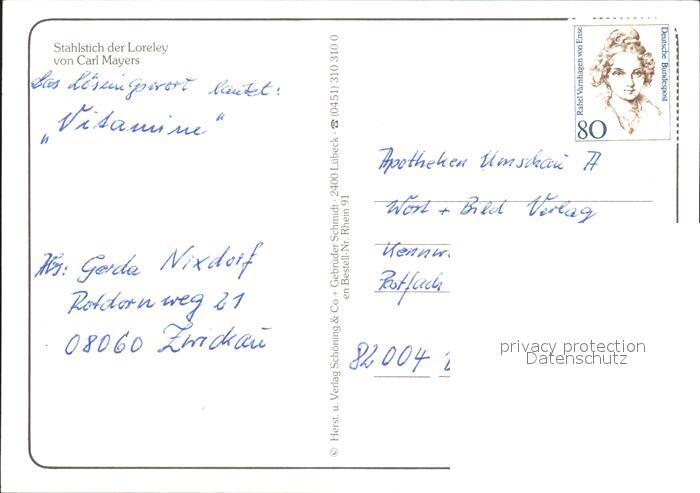 Stahlstich der Loreley
von Carl Mayers
Das Lösungswort lautet:
„Vitamine"
Abs: Gerda Nixdorf
Rotdornweg 21
08060 Zwickau
© Herst. u. Verlag Schöning & Co + Gebrüder Schmidt · 2400 Lübeck · ☎ (0451) 310 310 0
en Bestell-Nr. Rhein 91
Rahel Varnhagen von Ense
Deutsche Bundespost
80
Apotheken Umschau A
Wort + Bild Verlag
Kennw
Postfach
82004
privacy protection
Datenschutz